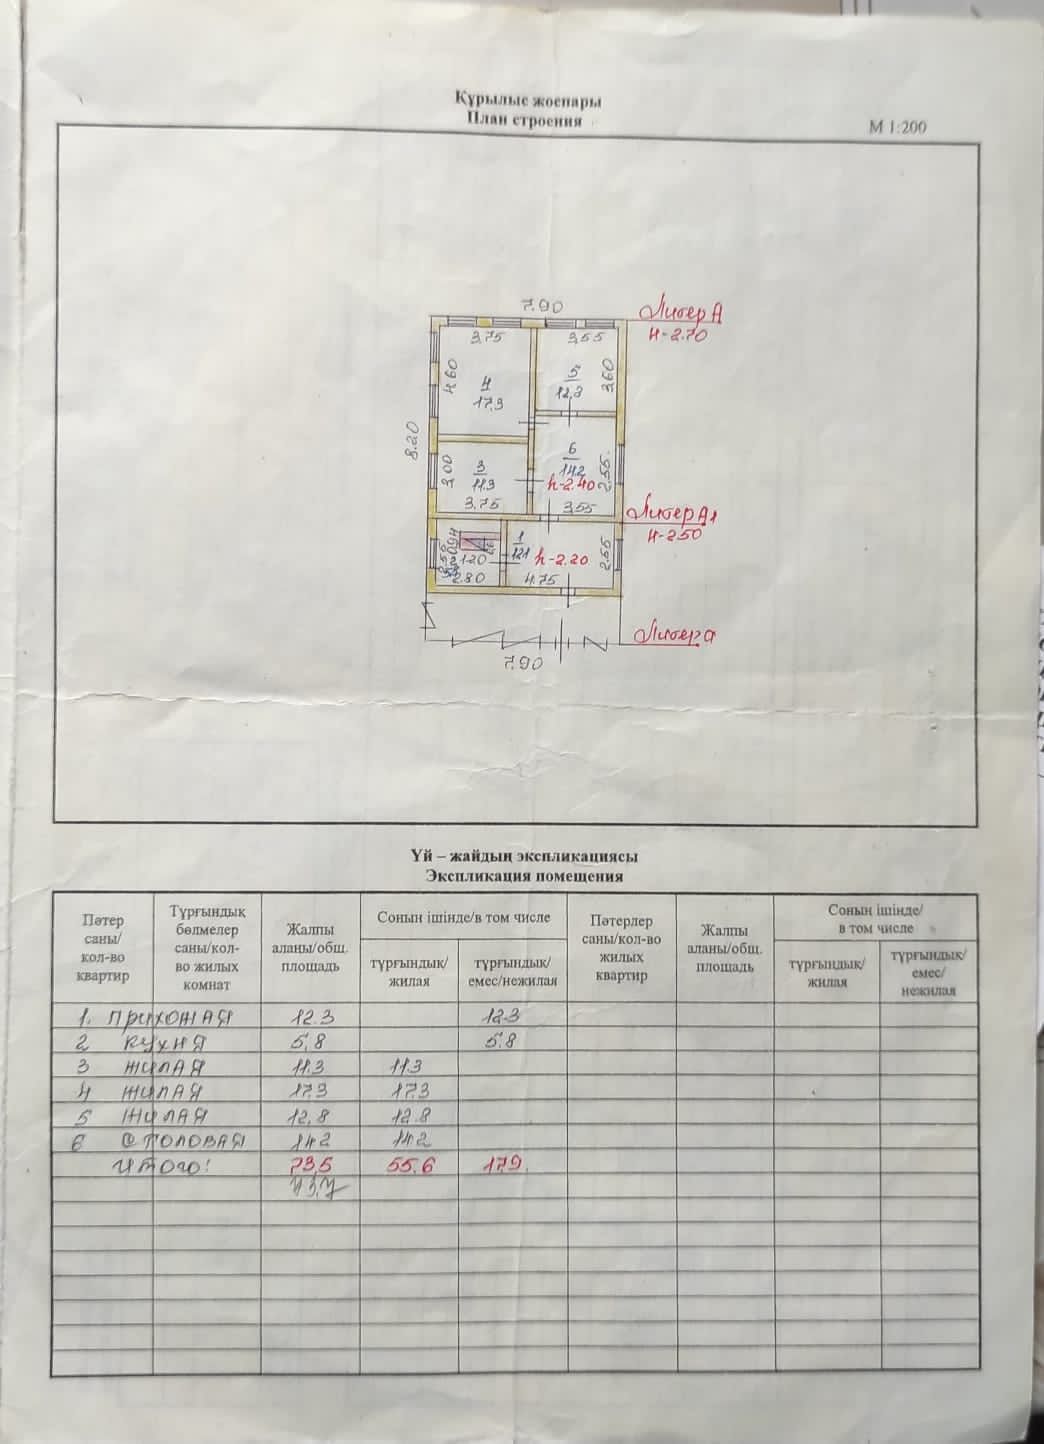 Құрылыс жоспары
План строения
М 1:200
7.90
Литер А
H-2.70
3.75
3.55
4.60
4
17.3
5
12.8
3.60
8.20
3.00
3
11.3
3.75
6
14.2
h-2.40
2.55
3.55
Литер А1
H-2.50
2.55
0.94
1.20
2.80
1
12.1
h-2.20
4.75
2.55
Литер а
7.90
Үй – жайдың экспликациясы
Экспликация помещения
Пәтер саны/ кол-во квартир
Тұрғындық бөлмелер саны/кол-во жилых комнат
Жалпы аланы/общ. площадь
Сонын ішінде/в том числе
тұрғындық/ жилая
тұрғындық/ емес/нежилая
Пәтерлер саны/кол-во жилых квартир
Жалпы аланы/общ. площадь
Соның ішінде/ в том числе
тұрғындық/ жилая
тұрғындық/ емес/ нежилая
1. прихожая 12.3 12.3
2 кухня 5.8 5.8
3 жилая 11.3 11.3
4 жилая 17.3 17.3
5 жилая 12.8 12.8
6 столовая 14.2 14.2
Итого: 73,5 55.6 17.9